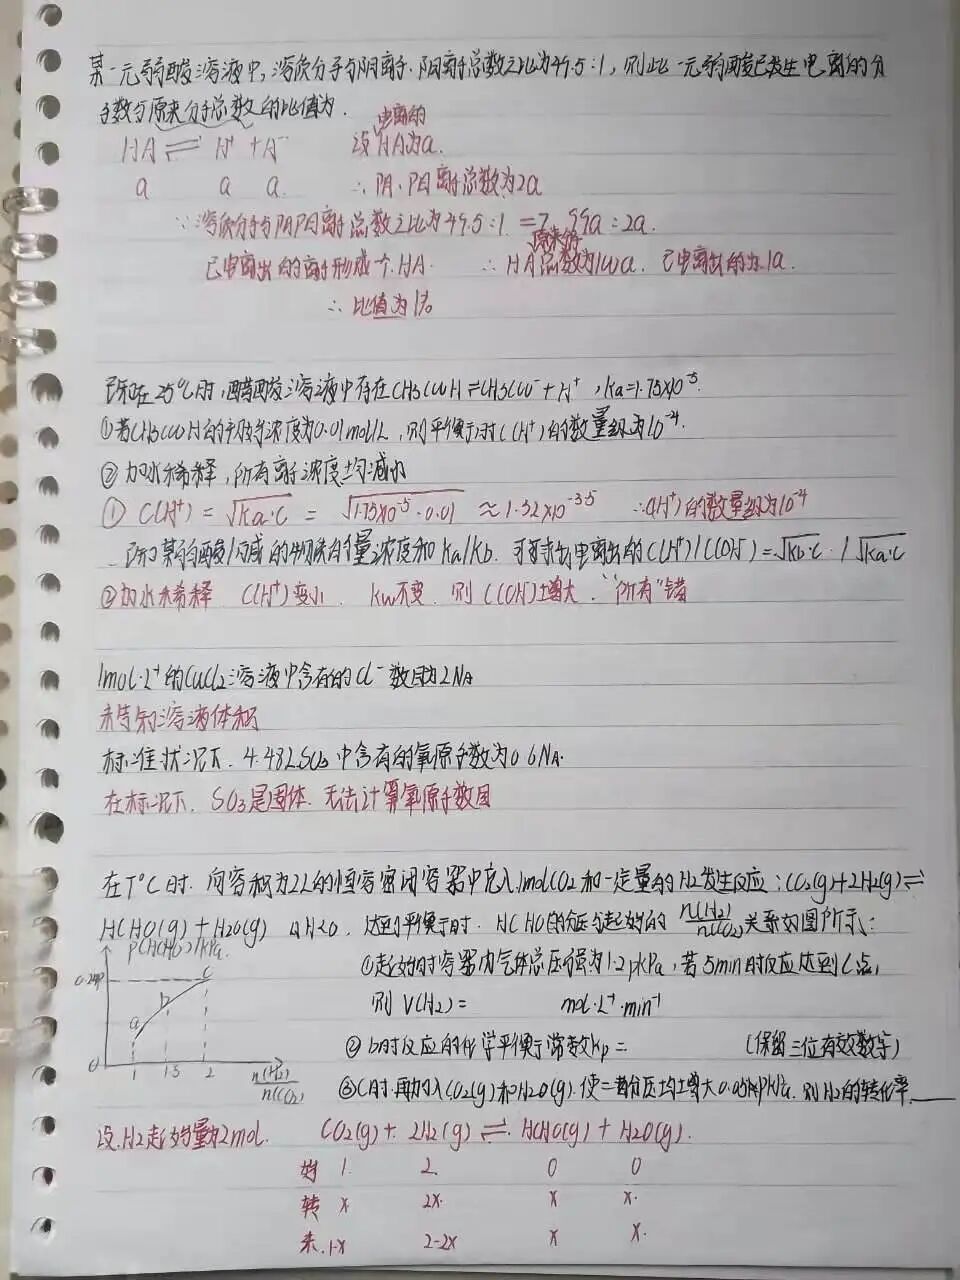 某一元弱酸溶液中,溶质分子与阴离子.阳离子总数之比为49.5:1,则此一元弱酸已发生电离的分
子数与原来分子总数的比值为.
电离的
HA⇌H⁺+A⁻ 设HA为a.
a a a. ∴阴.阳离子总数为2a
∵溶质分子与阴阳离子总数之比为49.5:1. => 99a:2a.
原来的
已电离出的离子形成个HA. ∴HA总数为100a.已电离出的为1a.
∴比值为1%
已知在25℃时,醋酸溶液中存在CH3COOH⇌CH3COO⁻+H⁺,Ka=1.75×10⁻⁵.
①若CH3COOH的初始浓度为0.01mol/L,则平衡时C(H⁺)的数量级为10⁻⁴.
②加水稀释,所有离子浓度均减小
① C(H⁺)=√Ka·C = √1.75×10⁻⁵·0.01 ≈1.32×10⁻³·⁵ ∴C(H⁺)的数量级为10⁻⁴
已知某弱酸/弱碱的物质的量浓度和Ka/Kb.可求出电离出的C(H⁺)/C(OH⁻)=√Kb·C./√Ka·C
②加水稀释 C(H⁺)变小. Kw不变.则C(OH⁻)增大."所有"错
1mol·L⁻¹的CuCl2溶液中含有的Cl⁻数目为2NA
未告知溶液体积
标准状况下.4.48LSO3中含有的氧原子数为0.6NA.
在标况下.SO3是固体.无法计算氧原子数目
在T℃时.向容积为2L的恒容密闭容器中充入1molCO2和一定量的H2发生反应:CO2(g)+2H2(g)⇌
HCHO(g)+H2O(g) △H<0.达到平衡时.HCHO的分压与起始的n(H2)/n(CO2)关系如图所示:
p(HCHO)/kPa.
0.24p
a b c
0 1 1.5 2 n(H2)/n(CO2)
①起始时容器内气体总压强为1.2pkPa,若5min时反应达到C点,
则V(H2)= mol·L⁻¹·min⁻¹
②b时反应的化学平衡常数Kp= (保留三位有效数字)
③C时.再加入CO2(g)和H2O(g).使二者分压均增大0.05pkPa.则H2的转化率.____
设.H2起始量为2mol. CO2(g)+2H2(g)⇌HCHO(g)+H2O(g).
始 1. 2. 0 0
转 x 2x. x x.
末.1-x 2-2x x x.